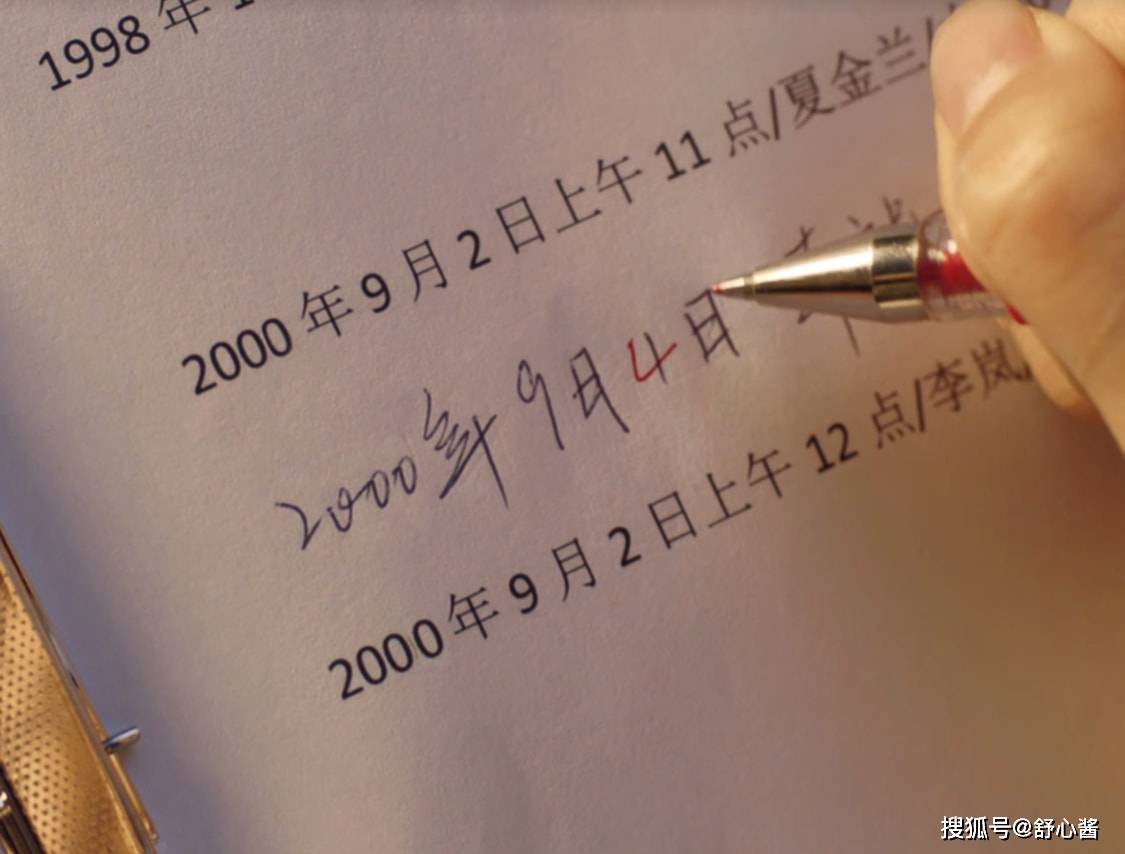 1998年1
2000年9月2日上午11点/夏金兰/
2000年9月4日
2000年9月2日上午12点/李岚/
搜狐号@舒心酱